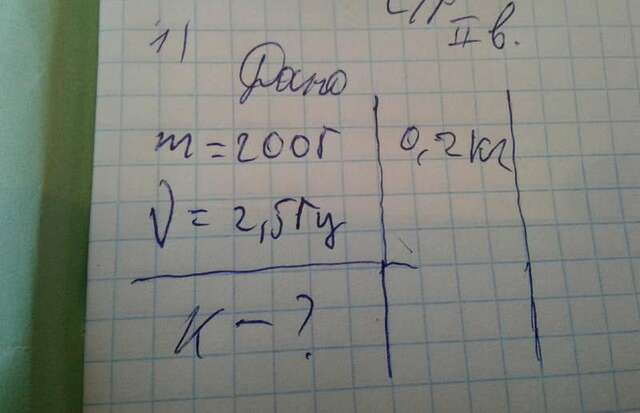 II в.
1)
Дано
m = 200г 0,2 кг
ν = 2,5 Гц
K - ?